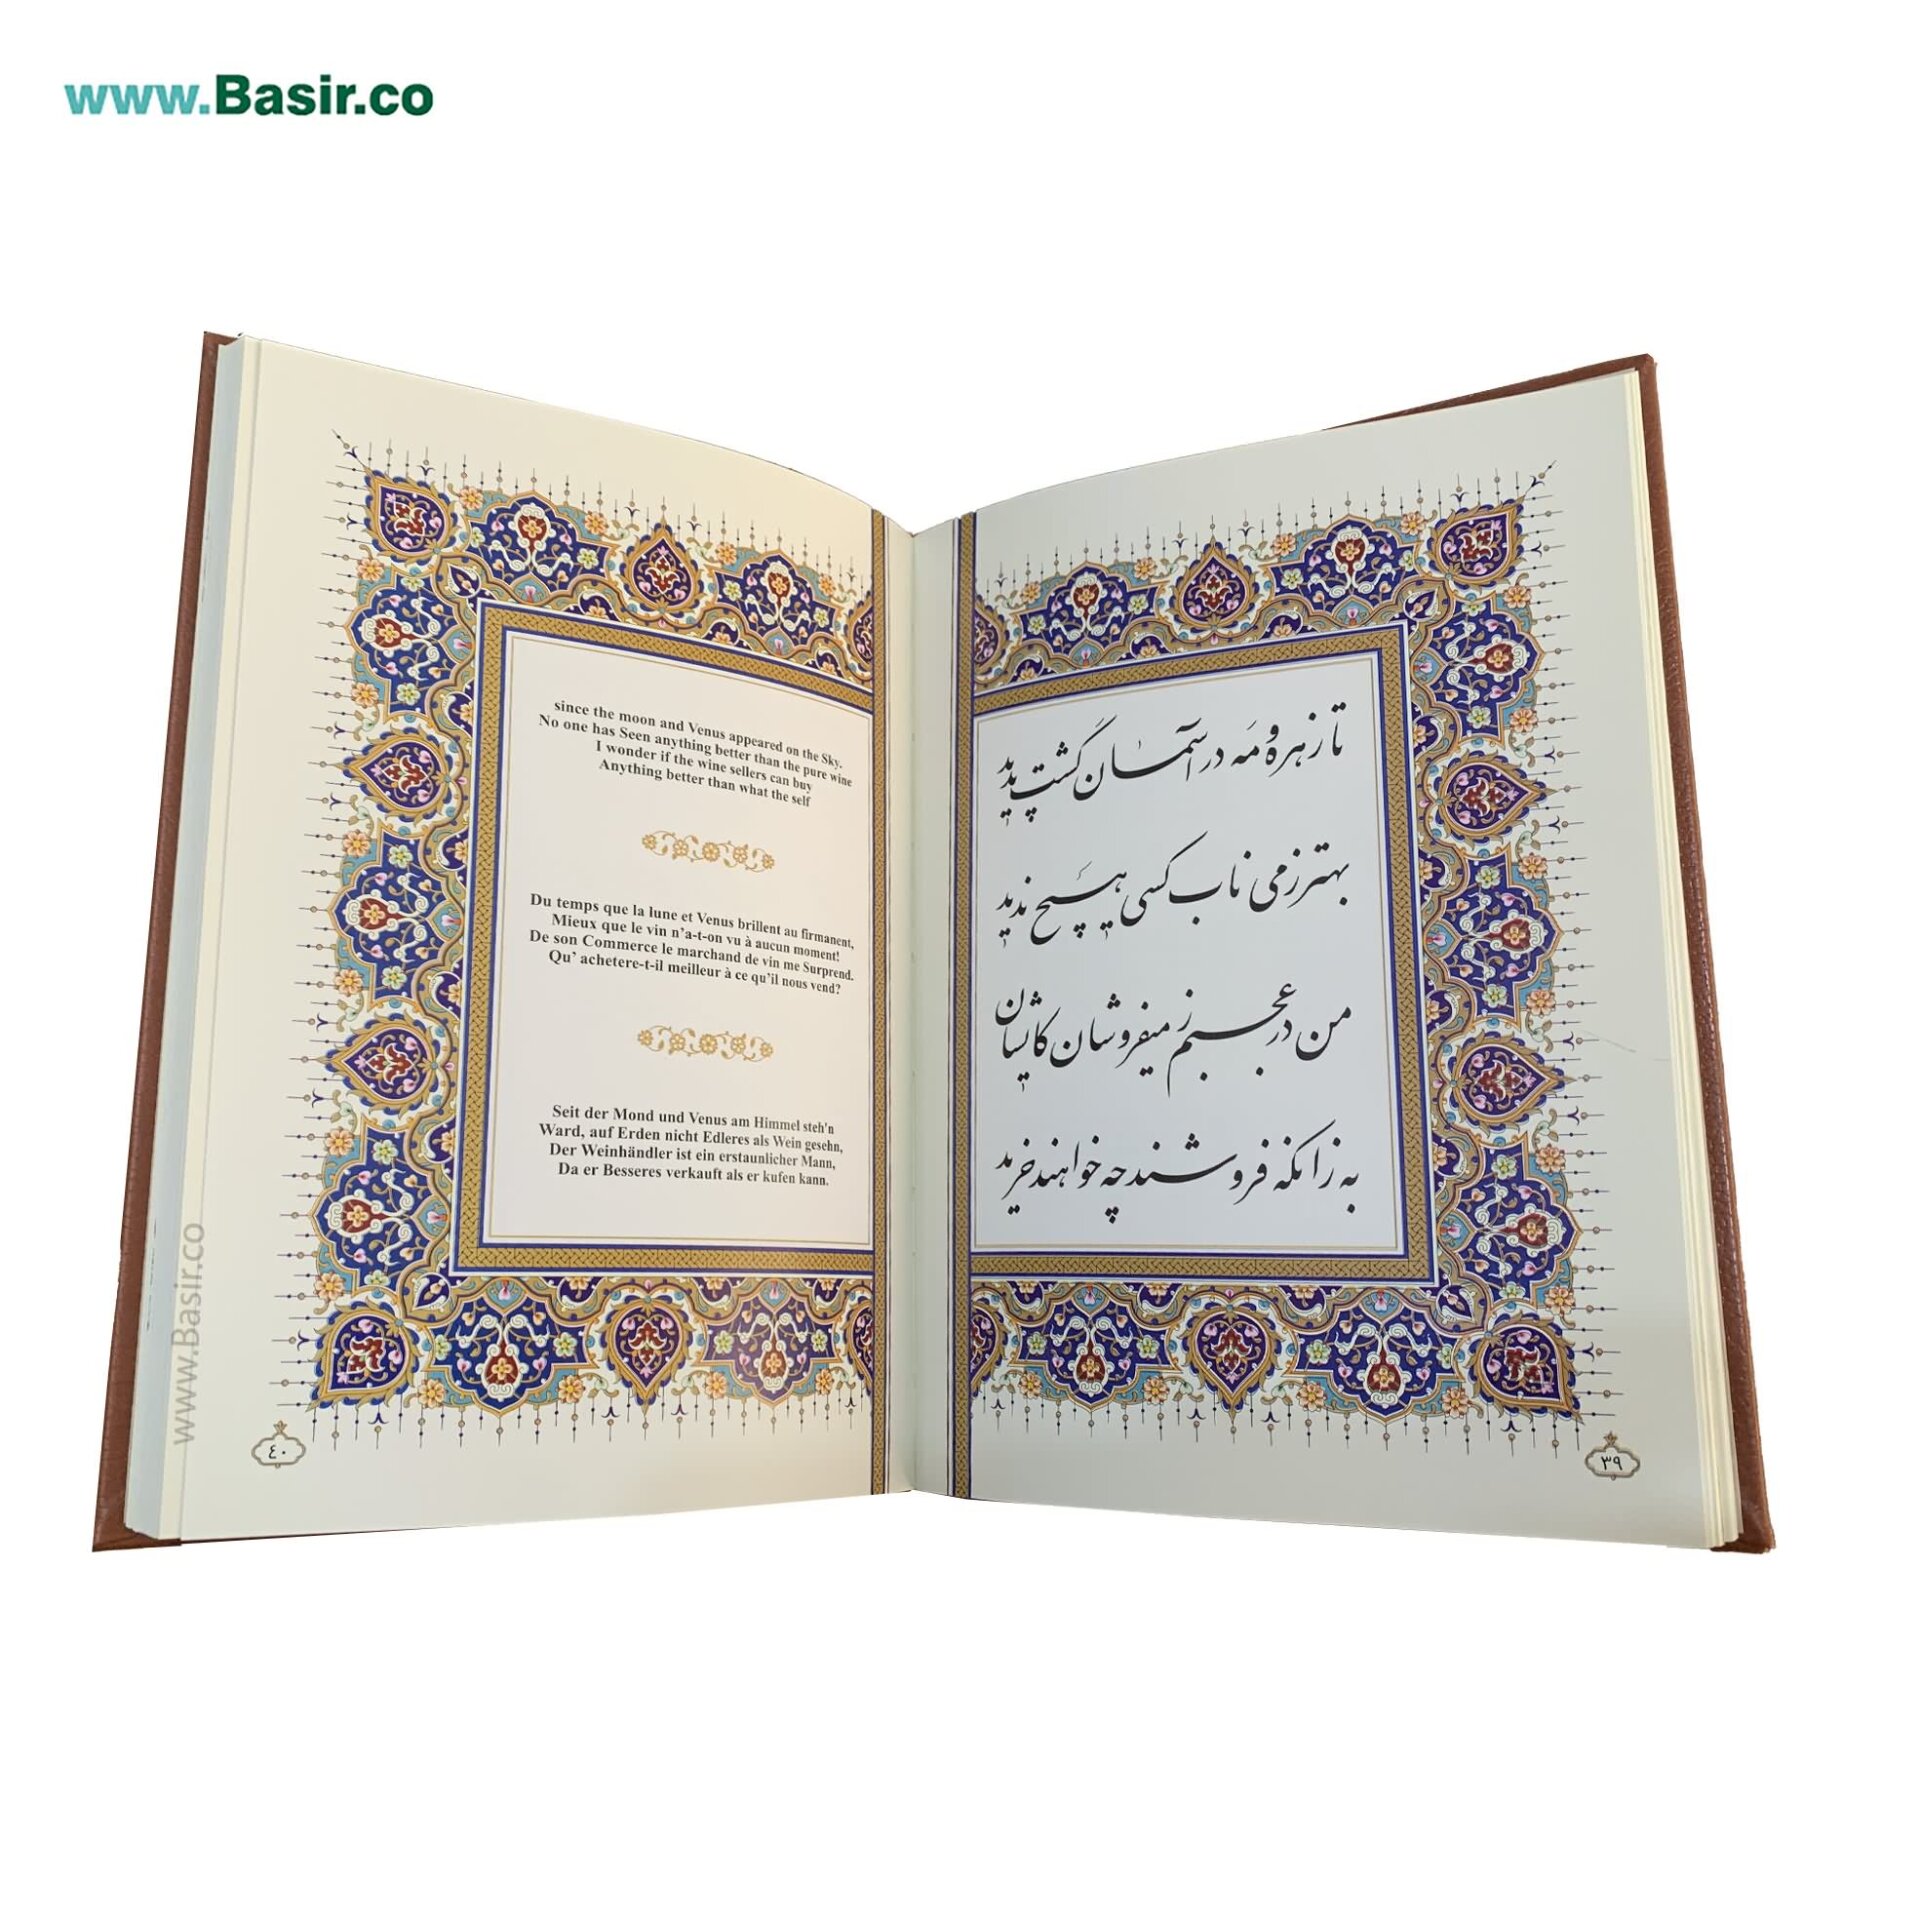 www.Basir.co
تا زهره و مه در آسمان گشت پدید
بهتر ز می ناب کسی هیچ ندید
من در عجبم ز میفروشان کایشان
به زانکه فروشند چه خواهند خرید
٣٩
since the moon and Venus appeared on the Sky.
No one has Seen anything better than the pure wine
I wonder if the wine sellers can buy
Anything better than what the self
Du temps que la lune et Venus brillent au firmanent,
Mieux que le vin n'a-t-on vu à aucun moment!
De son Commerce le marchand de vin me Surprend.
Qu' achetere-t-il meilleur à ce qu'il nous vend?
Seit der Mond und Venus am Himmel steh'n
Ward, auf Erden nicht Edleres als Wein gesehn,
Der Weinhändler ist ein erstaunlicher Mann,
Da er Besseres verkauft als er kufen kann.
٤٠
www.Basir.co